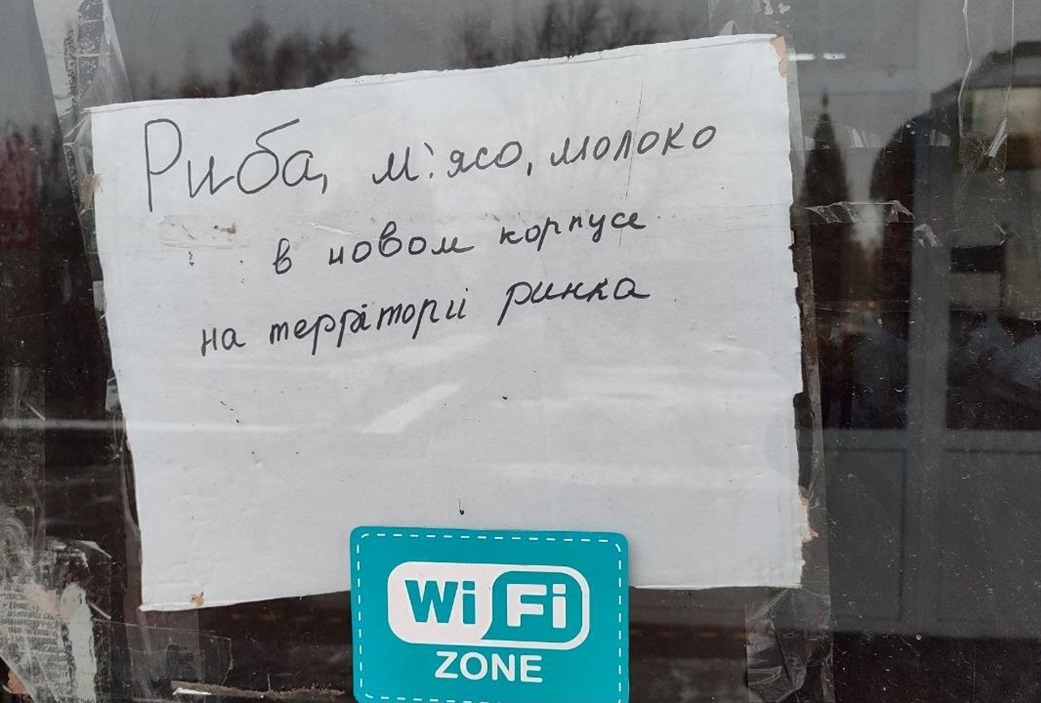 Риба, м'ясо, молоко
в новом корпусе
на террітории ринка
Wi Fi
ZONE